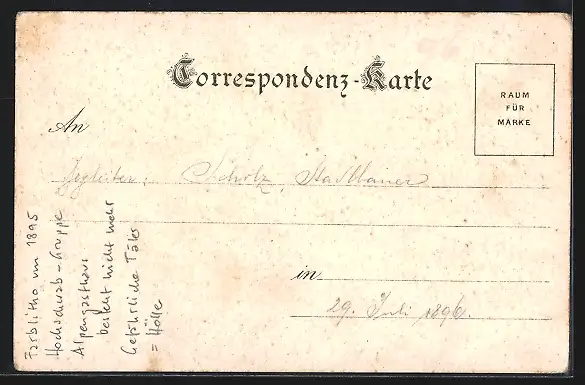 Correspondenz-Karte
RAUM
FÜR
MARKE
An
Begleiter: Scholz, Stadlbauer
in
29. Juli 1896
Farblitho um 1895
Hochschwab-Gruppe
Alpengasthaus
besteht nicht mehr
Gefährliche
= Hölle